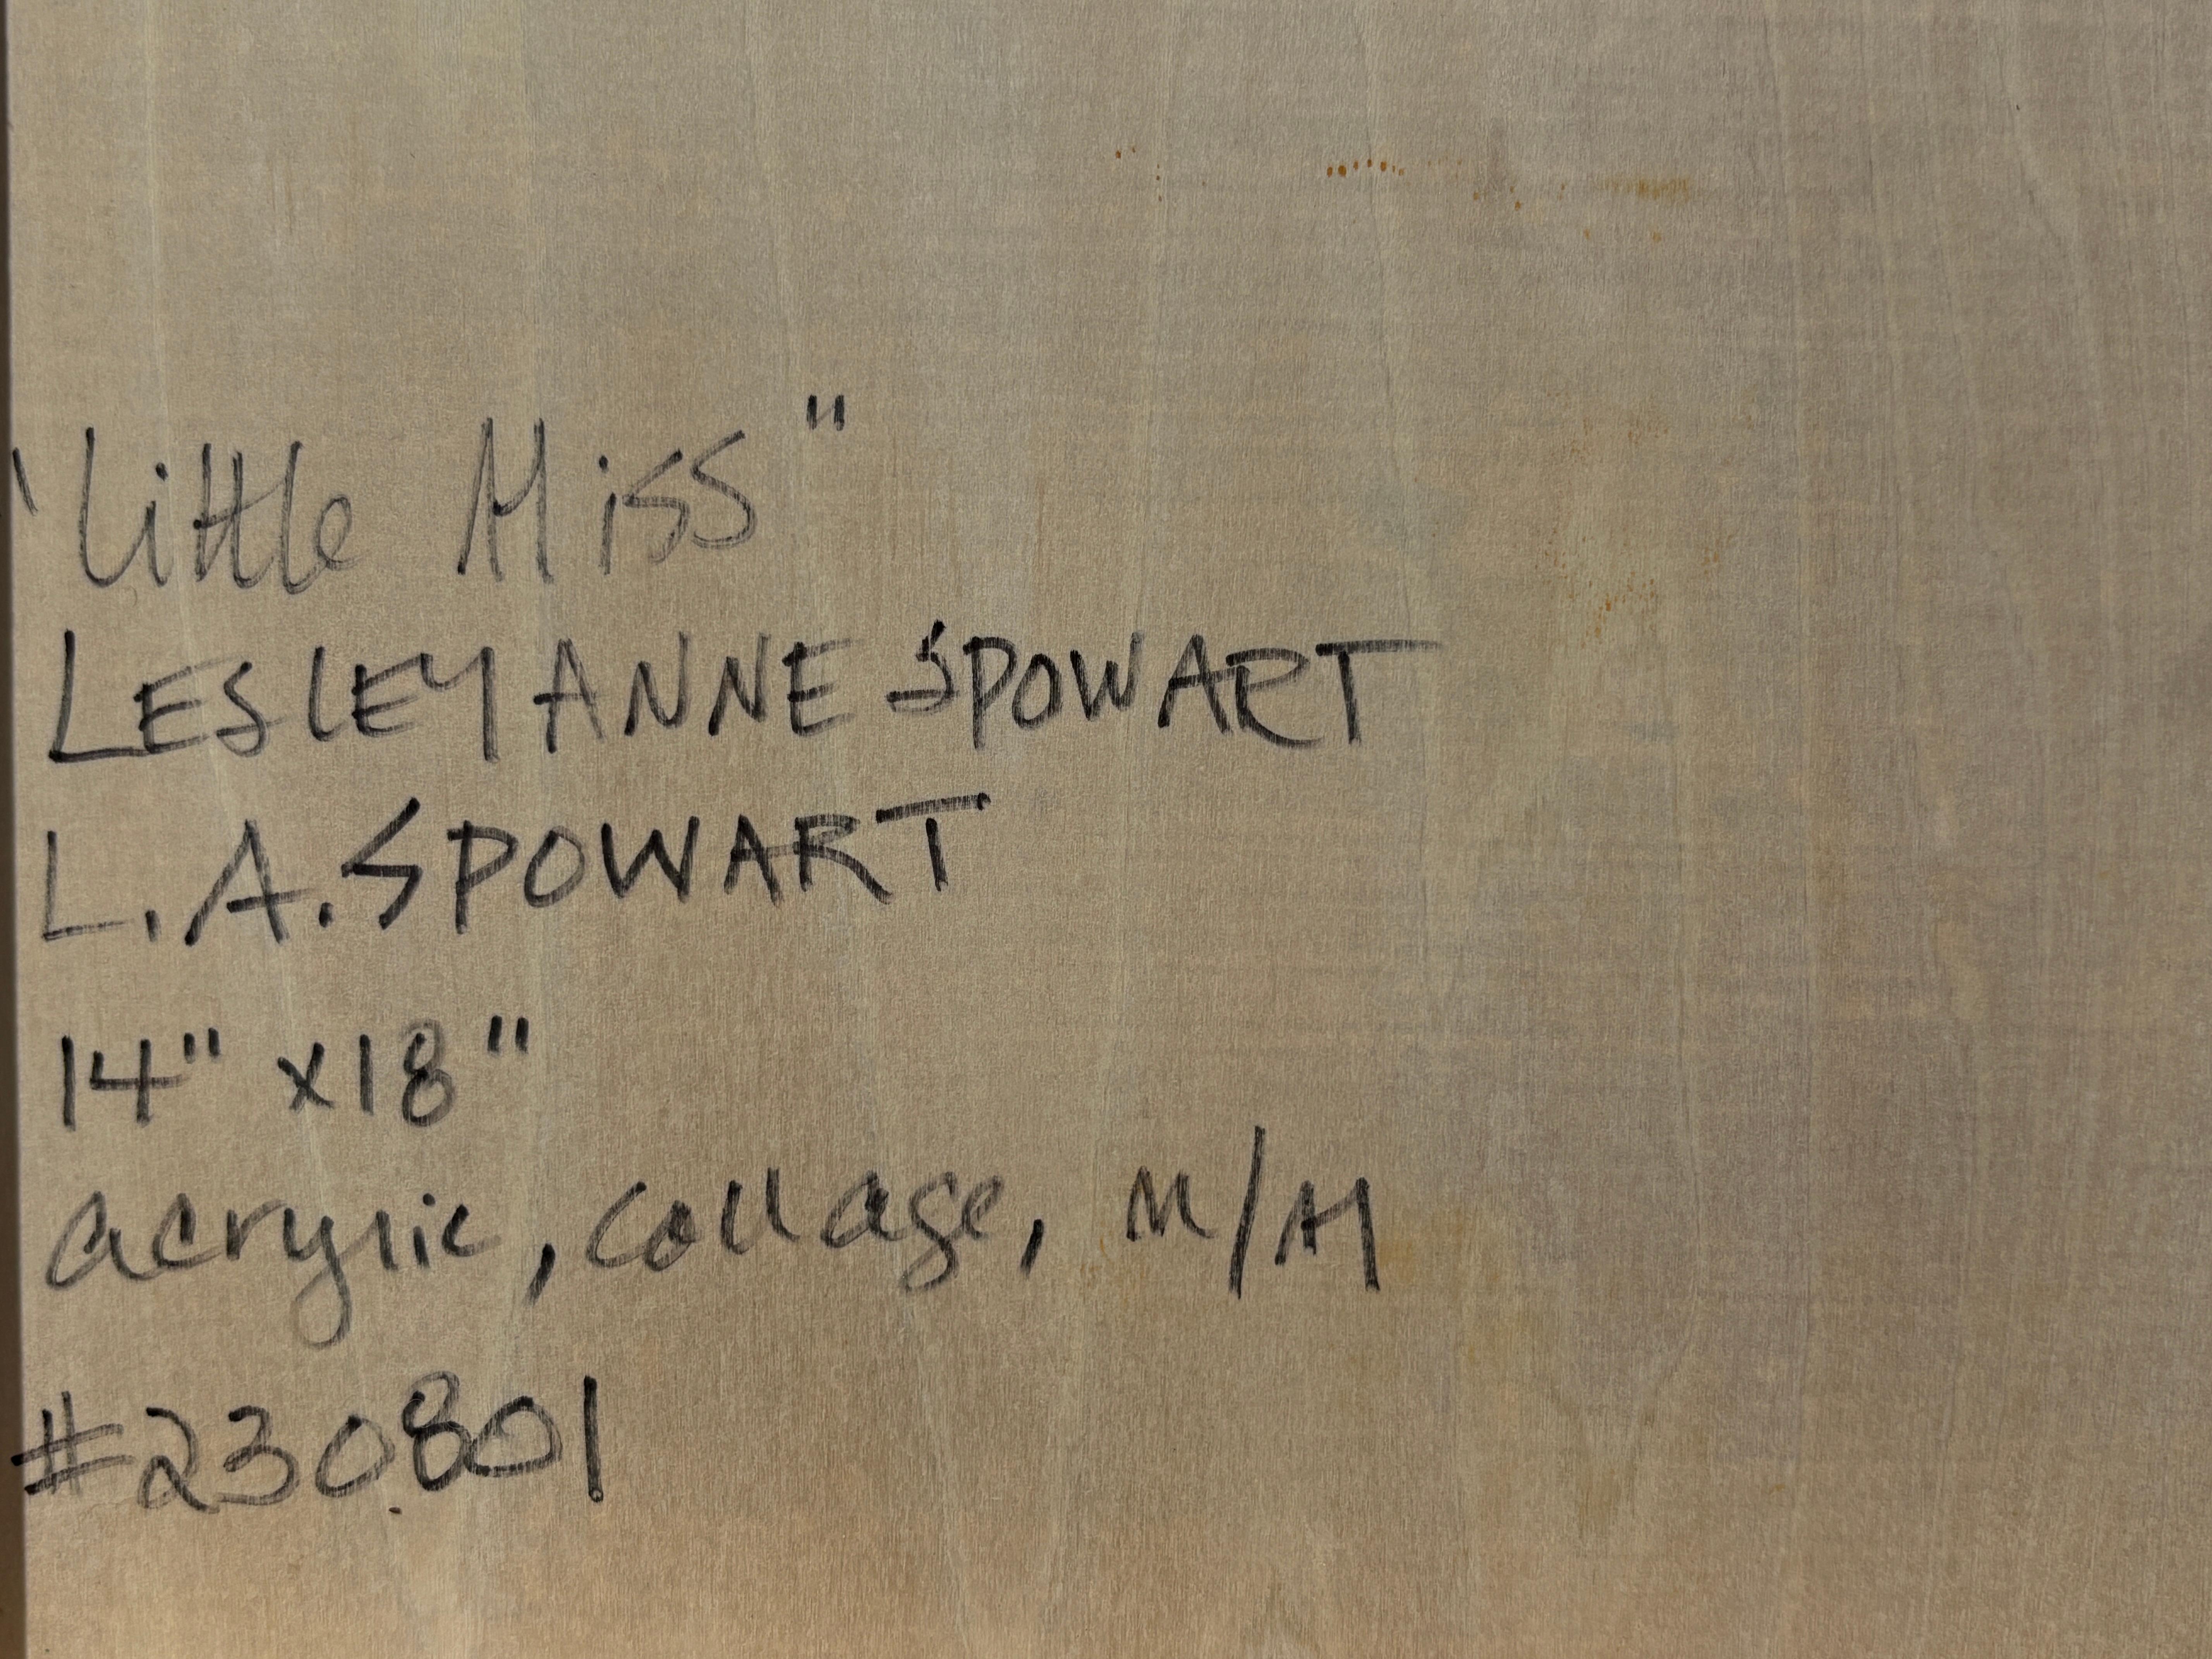 "Little Miss"
LESLEYANNE SPOWART
L.A. SPOWART
14" x 18"
acrylic, collage, M/M
#230801